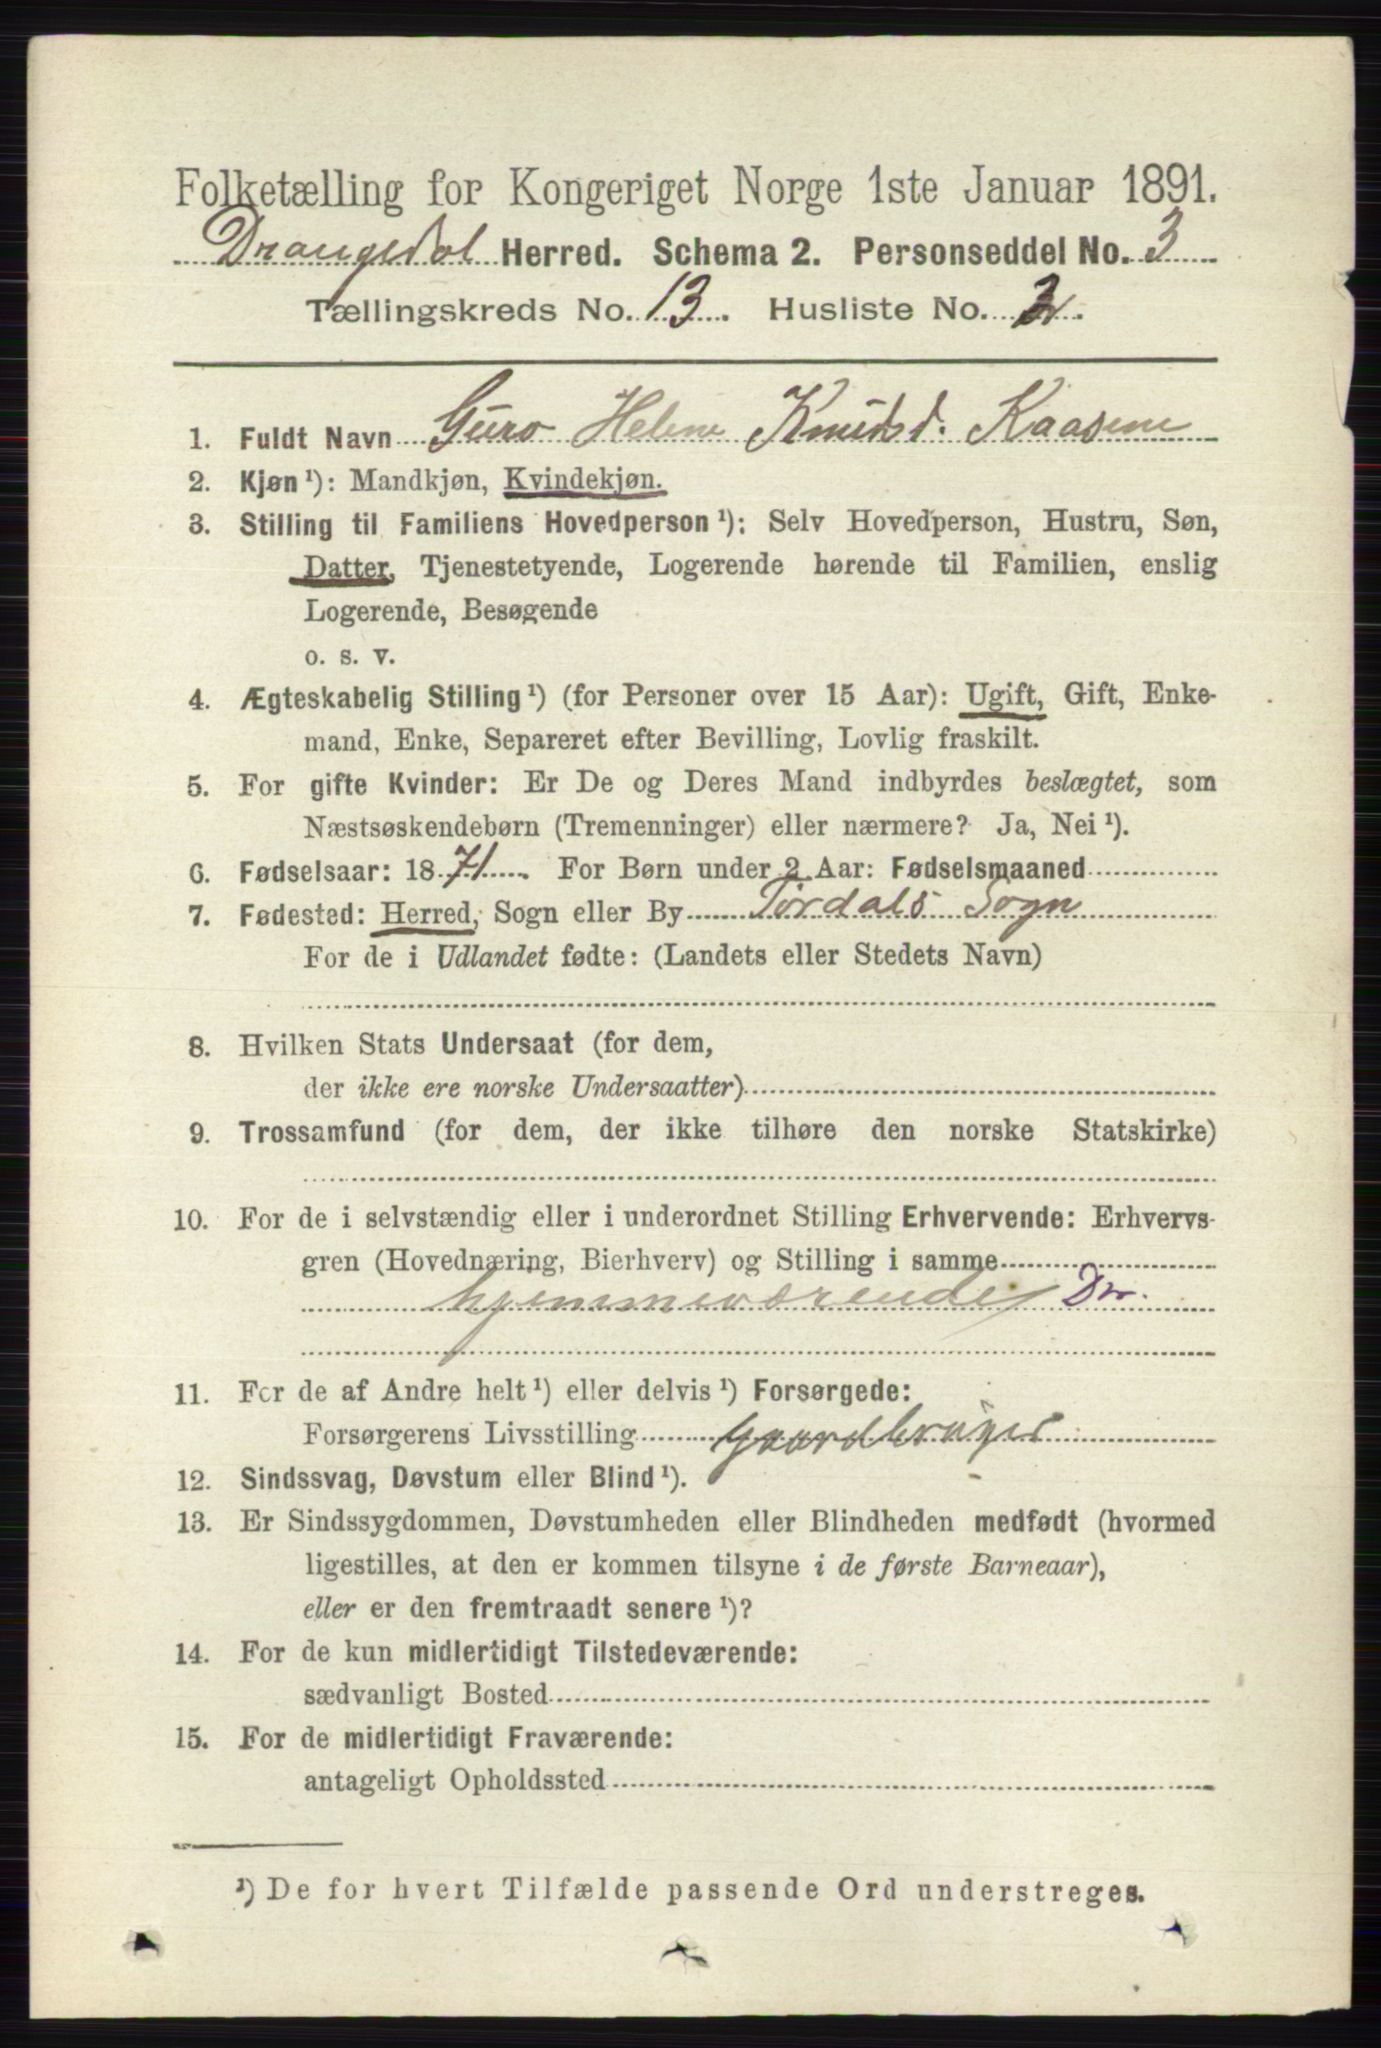 Folketælling for Kongeriget Norge 1ste Januar 1891.
Drangedal Herred. Schema 2. Personseddel No. 3
Tællingskreds No. 13. Husliste No. 2.
1. Fuldt Navn Guro Helene Knudsd. Kaasene
2. Kjøn ¹): Mandkjøn, Kvindekjøn.
3. Stilling til Familiens Hovedperson ¹): Selv Hovedperson, Hustru, Søn,
Datter, Tjenestetyende, Logerende hørende til Familien, enslig
Logerende, Besøgende
o. s. v.
4. Ægteskabelig Stilling ¹) (for Personer over 15 Aar): Ugift, Gift, Enke-
mand, Enke, Separeret efter Bevilling, Lovlig fraskilt.
5. For gifte Kvinder: Er De og Deres Mand indbyrdes beslægtet, som
Næstsøskendebørn (Tremenninger) eller nærmere? Ja, Nei ¹).
6. Fødselsaar: 1871. For Børn under 2 Aar: Fødselsmaaned
7. Fødested: Herred, Sogn eller By Tørdals Sogn
For de i Udlandet fødte: (Landets eller Stedets Navn)
8. Hvilken Stats Undersaat (for dem,
der ikke ere norske Undersaatter)
9. Trossamfund (for dem, der ikke tilhøre den norske Statskirke)
10. For de i selvstændig eller i underordnet Stilling Erhvervende: Erhvervs-
gren (Hovednæring, Bierhverv) og Stilling i samme
hjemmeværende Dr.
11. For de af Andre helt ¹) eller delvis ¹) Forsørgede:
Forsørgerens Livsstilling Gaardbruger
12. Sindssvag, Døvstum eller Blind ¹).
13. Er Sindssygdommen, Døvstumheden eller Blindheden medfødt (hvormed
ligestilles, at den er kommen tilsyne i de første Barneaar),
eller er den fremtraadt senere ¹)?
14. For de kun midlertidigt Tilstedeværende:
sædvanligt Bosted
15. For de midlertidigt Fraværende:
antageligt Opholdssted
¹) De for hvert Tilfælde passende Ord understreges.